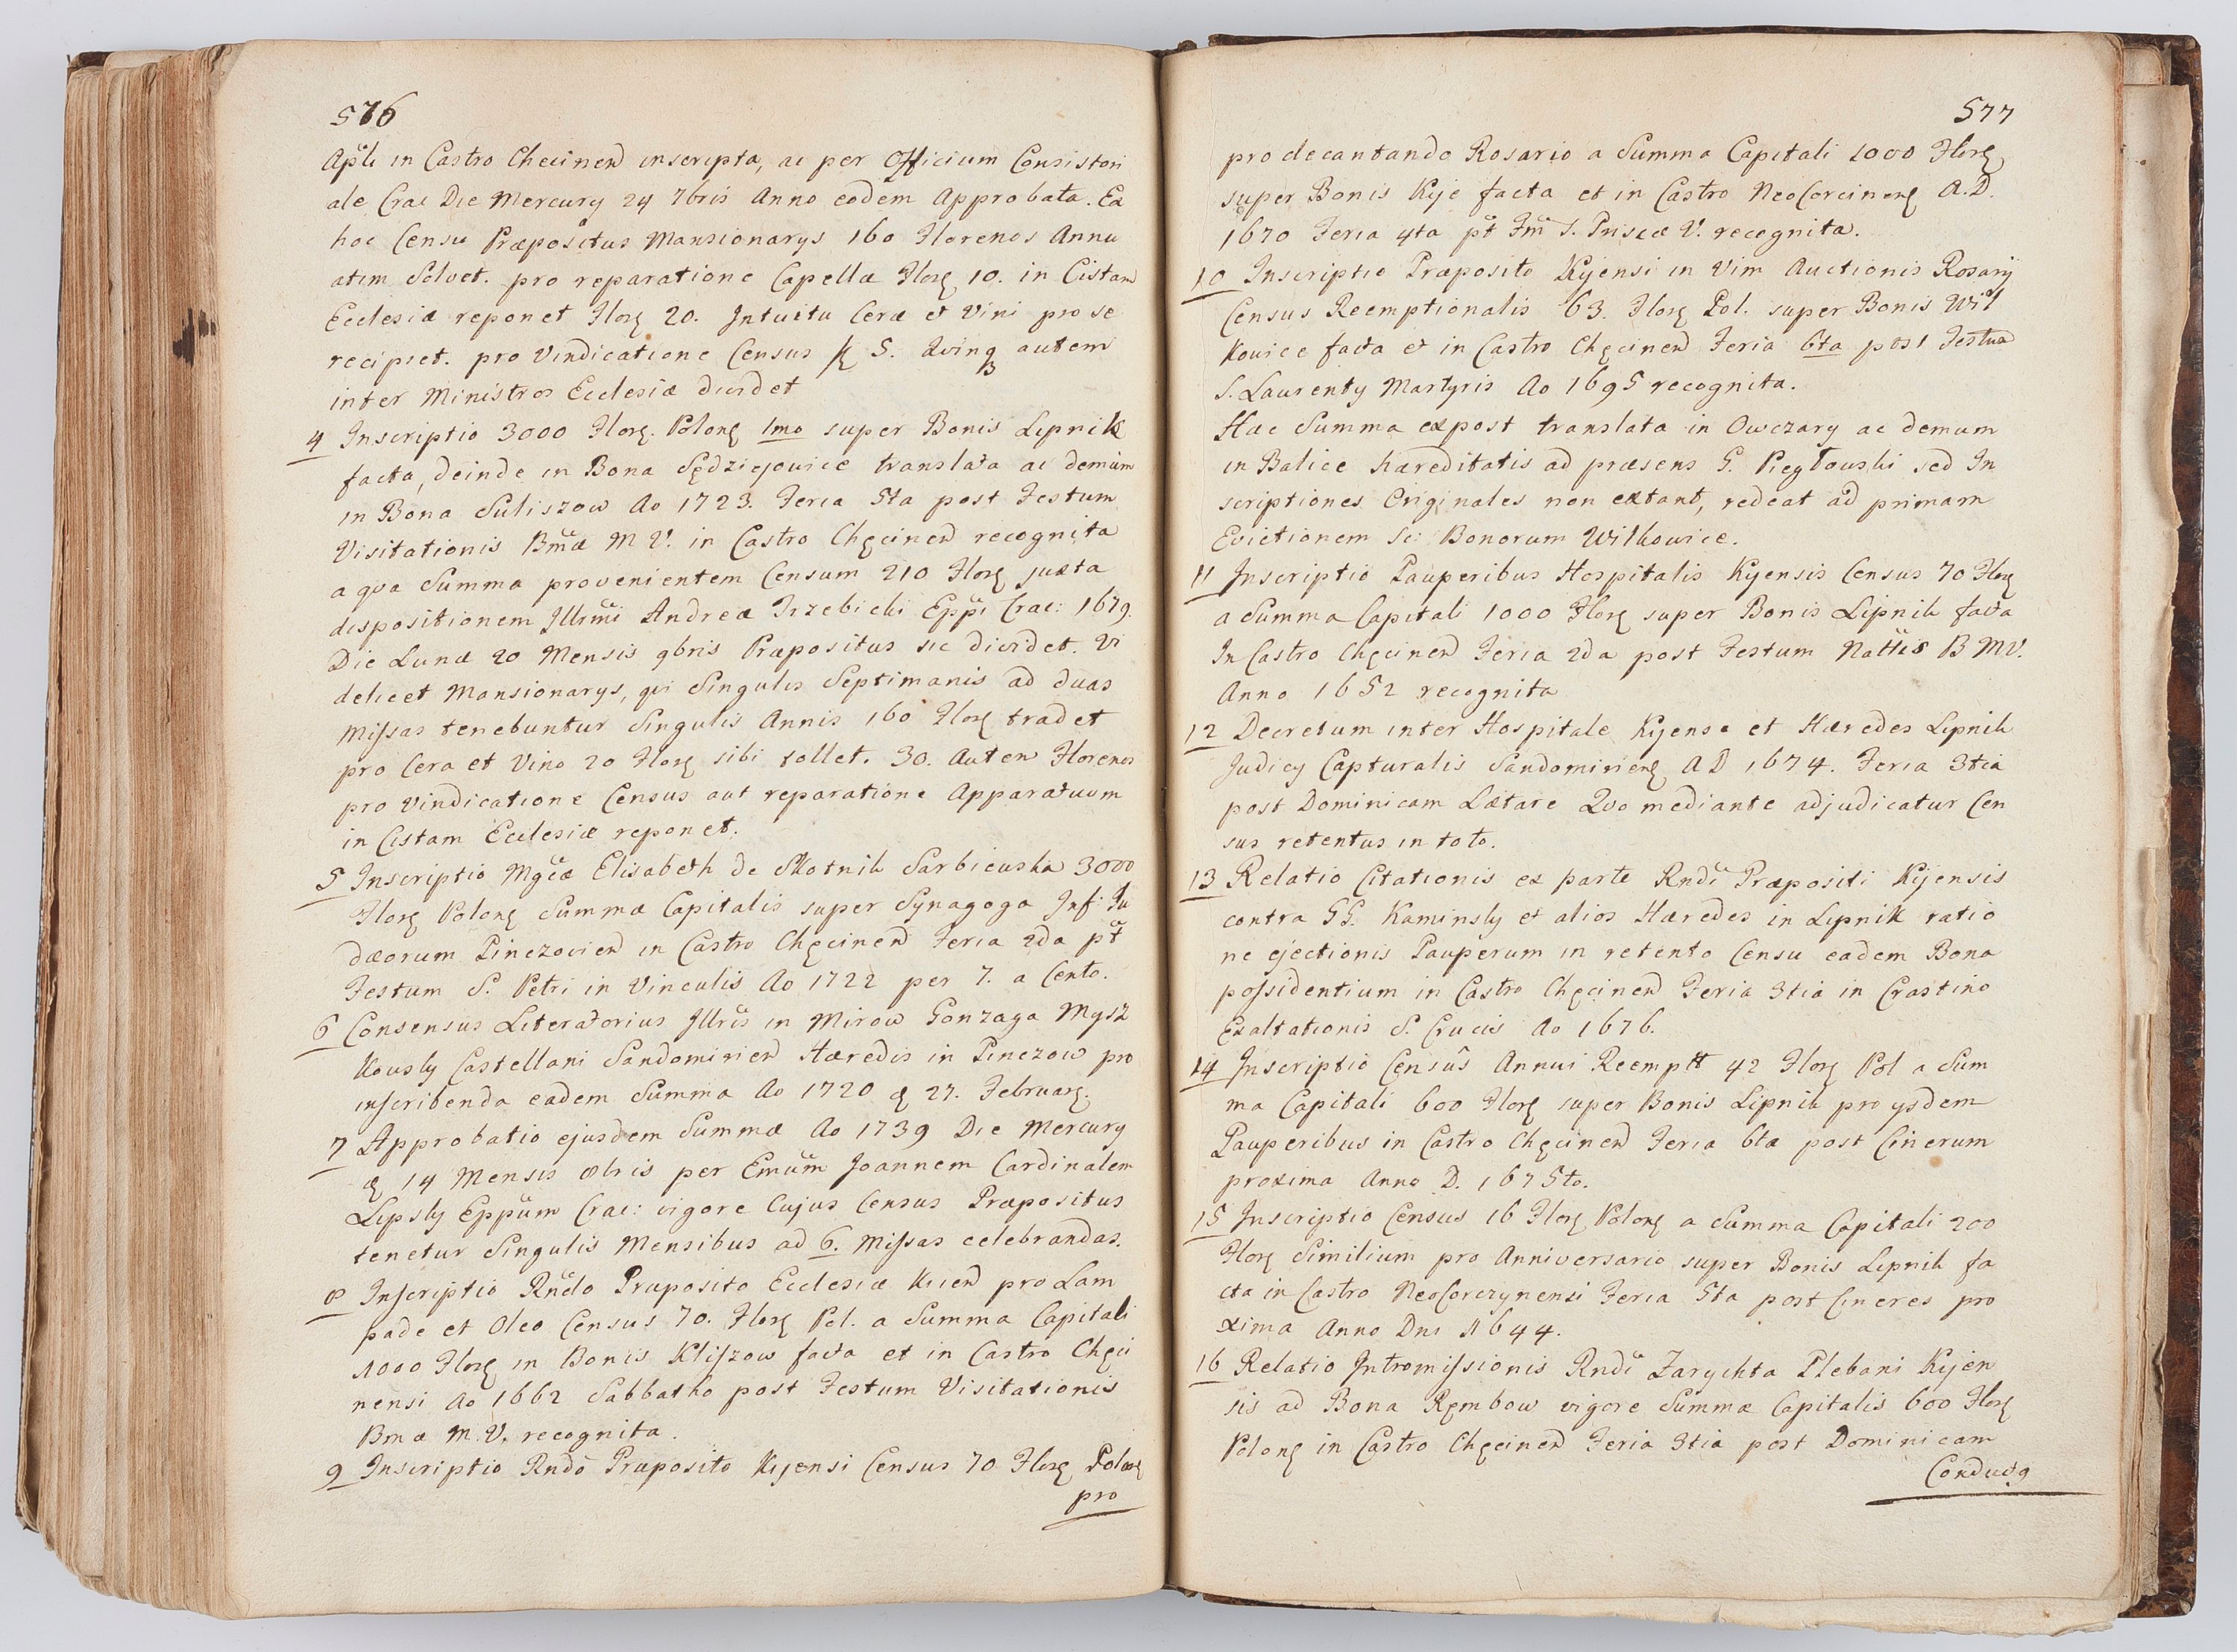 576
Apli in Castro Checinen inscripta, ac per Officium Consistori
ale Crac Die Mercury 24 7bris Anno eodem Approbata. Ex
hoc Censu Præpositus Mansionarys 160 Florenos Annu
atim Solvet. pro reparatione Capellæ Flor 10. in Cistam
Ecclesiæ reponet Flor 20. Intuitu Ceræ et Vini pro se
recipiet. pro Vindicatione Census 5. autem
inter Ministros Ecclesiæ dividet
4 Inscriptio 3000 Flor. Polon 1mo super Bonis Lipnik
facta, deinde in Bona Sędziejowice translata ac demùm
in Bona Suliszow Ao 1723. Feria 5ta post Festum
Visitationis Bmæ M V. in Castro Chęcinen recognita
a qva Summa provenientem Censum 210 Flor juxta
dispositionem Illrmi Andreæ Trzebicki Eppi Crac: 1679.
Die Lunæ 20 Mensis 9bris Præpositus sic dividet. Vi
delicet Mansionarys, qvi Singulis Septimanis ad duas
Missas tenebuntur Singulis Annis 160 Flor tradet
pro Cera et Vino 20 Flor sibi tollet. 30. Autem Florenos
pro vindicatione Census aut reparatione Apparatuum
in Cistam Ecclesiæ reponet.
5 Inscriptio Mgcæ Elisabeth de Skotnik Sarbiewska 3000
Flor Polon Summæ Capitalis super Synagoga Inf: Ju
dæorum Pinczovien in Castro Chęcinen Feria 2da pt
Festum S. Petri in Vinculis Ao 1722 per 7. a Cento.
6 Consensus Literatorius Illris in Mirow Gonzaga Mysz
kowsky Castellani Sandomirien Hæredis in Pinczow pro
inscribenda eadem Summa Ao 1720 27. Februar.
7 Approbatio ejusdem Summæ Ao 1739 Die Mercury
14 Mensis 8bris per Emum Joannem Cardinalem
Lipsky Eppum Crac: vigore Cujus Census Præpositus
tenetur Singulis Mensibus ad 6. Missas celebrandas.
8 Inscriptio Rndo Præposito Ecclesiæ Kiien pro Lam
pade et Oleo Census 70. Flor Pol. a Summa Capitali
1000 Flor in Bonis Kliszow facta et in Castro Chęci
nensi Ao 1662 Sabbatho post Festum Visitationis
Bmæ M. V. recognita.
9 Inscriptio Rndo Præposito Kijensi Census 70 Flor Polon
pro
577
pro decantando Rosario a Summa Capitali 1000 Flor
super Bonis Kije facta et in Castro NeoCorcinen A.D.
1670 Feria 4ta pt Fm S. Priscæ V. recognita.
10 Inscriptio Præposito Kijensi in Vim Auctionis Rosarij
Census Reemptionalis 63. Flor Pol. super Bonis Wil
kowice facta et in Castro Chęcinen Feria 6ta post Festum
S. Laurenty Martyris Ao 1695 recognita.
Hæc Summa expost translata in Owczary ac demum
in Balice Hæreditatis ad præsens G. Piegłowski sed In
scriptiones Originales non extant, redeat ad primam
Evictionem Sc: Bonorum Wilkowice.
11 Inscriptio Pauperibus Hospitalis Kijensis Census 70 Flor
a Summa Capitali 1000 Flor super Bonis Lipnik facta
In Castro Chęcinen Feria 2da post Festum Nattis B MV.
Anno 1652 recognita
12 Decretum inter Hospitale Kijense et Hæredes Lipnik
Judicy Capturalis Sandomirien A D 1674. Feria 3tia
post Dominicam Lætare Quo mediante adjudicatur Cen
sus retentus in toto.
13 Relatio Citationis ex parte Rndi Præpositi Kijensis
contra GG. Kaminsky et alios Hæredes in Lipnik ratio
ne ejectionis Pauperum in retento Censu eadem Bona
possidentium in Castro Chęcinen Feria 3tia in Crastino
Exaltationis S. Crucis Ao 1676.
14 Inscriptio Censûs Annui Reemptt 42 Flor Pol a Sum
ma Capitali 600 Flor super Bonis Lipnik pro ysdem
Pauperibus in Castro Chęcinen Feria 6ta post Cinerum
proxima Anno D. 1675to.
15 Inscriptio Census 16 Flor Polon a Summa Capitali 200
Flor Similium pro Anniversario super Bonis Lipnik fa
cta in Castro NeoCorczynensi Feria 5ta post Cineres pro
xima Anno Dni 1644.
16 Relatio Intromissionis Rndi Zarychta Plebani Kijen
sis ad Bona Rembow vigore Summæ Capitalis 600 Flor
Polon in Castro Chęcinen Feria 3tia post Dominicam
Conductq